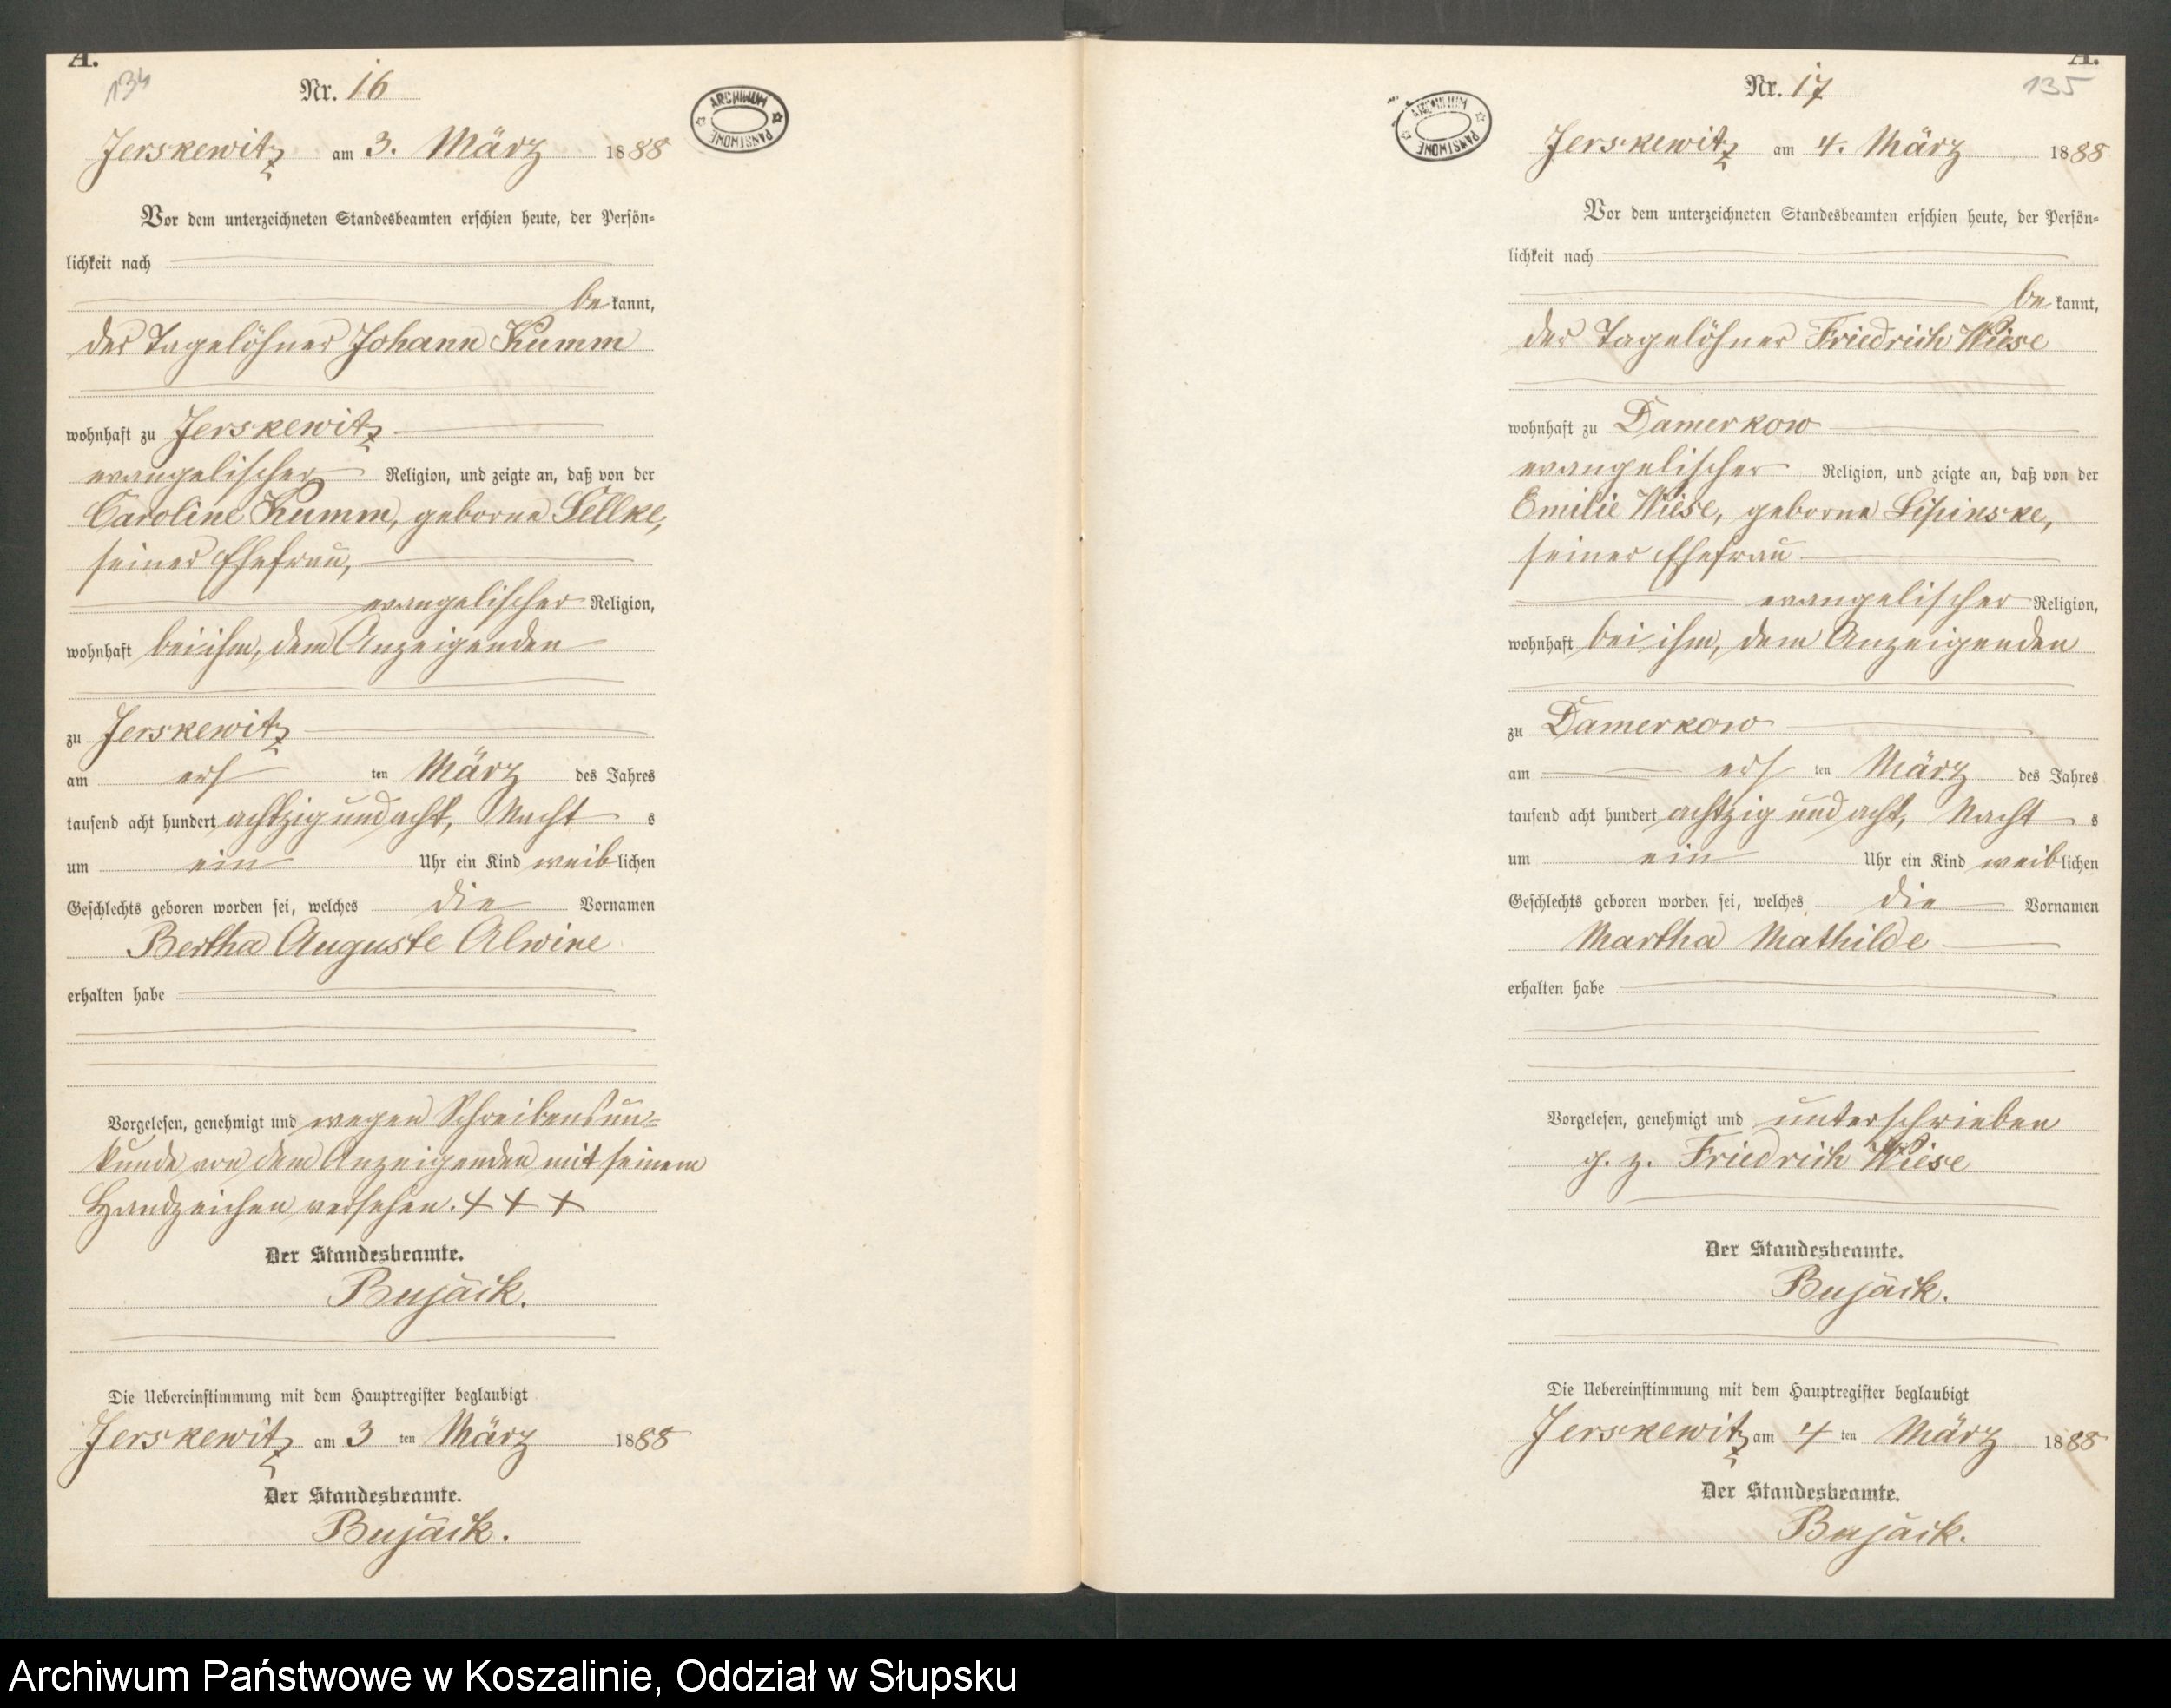 A.
134
Nr. 16
ARCHIWUM PAŃSTWOWE
Jerskewitz am 3. März 1888
Vor dem unterzeichneten Standesbeamten erschien heute, der Persön=
lichkeit nach
be kannt,
der Tagelöhner Johann Kumm
wohnhaft zu Jerskewitz
evangelischer Religion, und zeigte an, daß von der
Caroline Kumm, geborne Sellke,
seiner Ehefrau,
evangelischer Religion,
wohnhaft bei ihm, dem Anzeigenden
zu Jerskewitz
am ers ten März des Jahres
tausend acht hundert achtzig und acht, Nacht s
um ein Uhr ein Kind weib lichen
Geschlechts geboren worden sei, welches die Vornamen
Bertha Auguste Alwine
erhalten habe
Vorgelesen, genehmigt und wegen Schreibensun=
kunde von dem Anzeigenden mit seinem
Handzeichen versehen. + + +
Der Standesbeamte.
Bujäck.
Die Uebereinstimmung mit dem Hauptregister beglaubigt
Jerskewitz am 3 ten März 1888
Der Standesbeamte.
Bujäck.
A.
135
Nr. 17
ARCHIWUM PAŃSTWOWE
Jerskewitz am 4. März 1888
Vor dem unterzeichneten Standesbeamten erschien heute, der Persön=
lichkeit nach
be kannt,
der Tagelöhner Friedrich Wiese
wohnhaft zu Damerkow
evangelischer Religion, und zeigte an, daß von der
Emilie Wiese, geborne Lipinske,
seiner Ehefrau
evangelischer Religion,
wohnhaft bei ihm, dem Anzeigenden
zu Damerkow
am ers ten März des Jahres
tausend acht hundert achtzig und acht, Nacht s
um ein Uhr ein Kind weib lichen
Geschlechts geboren worden sei, welches die Vornamen
Martha Mathilde
erhalten habe
Vorgelesen, genehmigt und unterschrieben
g. z. Friedrich Wiese
Der Standesbeamte.
Bujäck.
Die Uebereinstimmung mit dem Hauptregister beglaubigt
Jerskewitz am 4 ten März 1888
Der Standesbeamte.
Bujäck.
Archiwum Państwowe w Koszalinie, Oddział w Słupsku